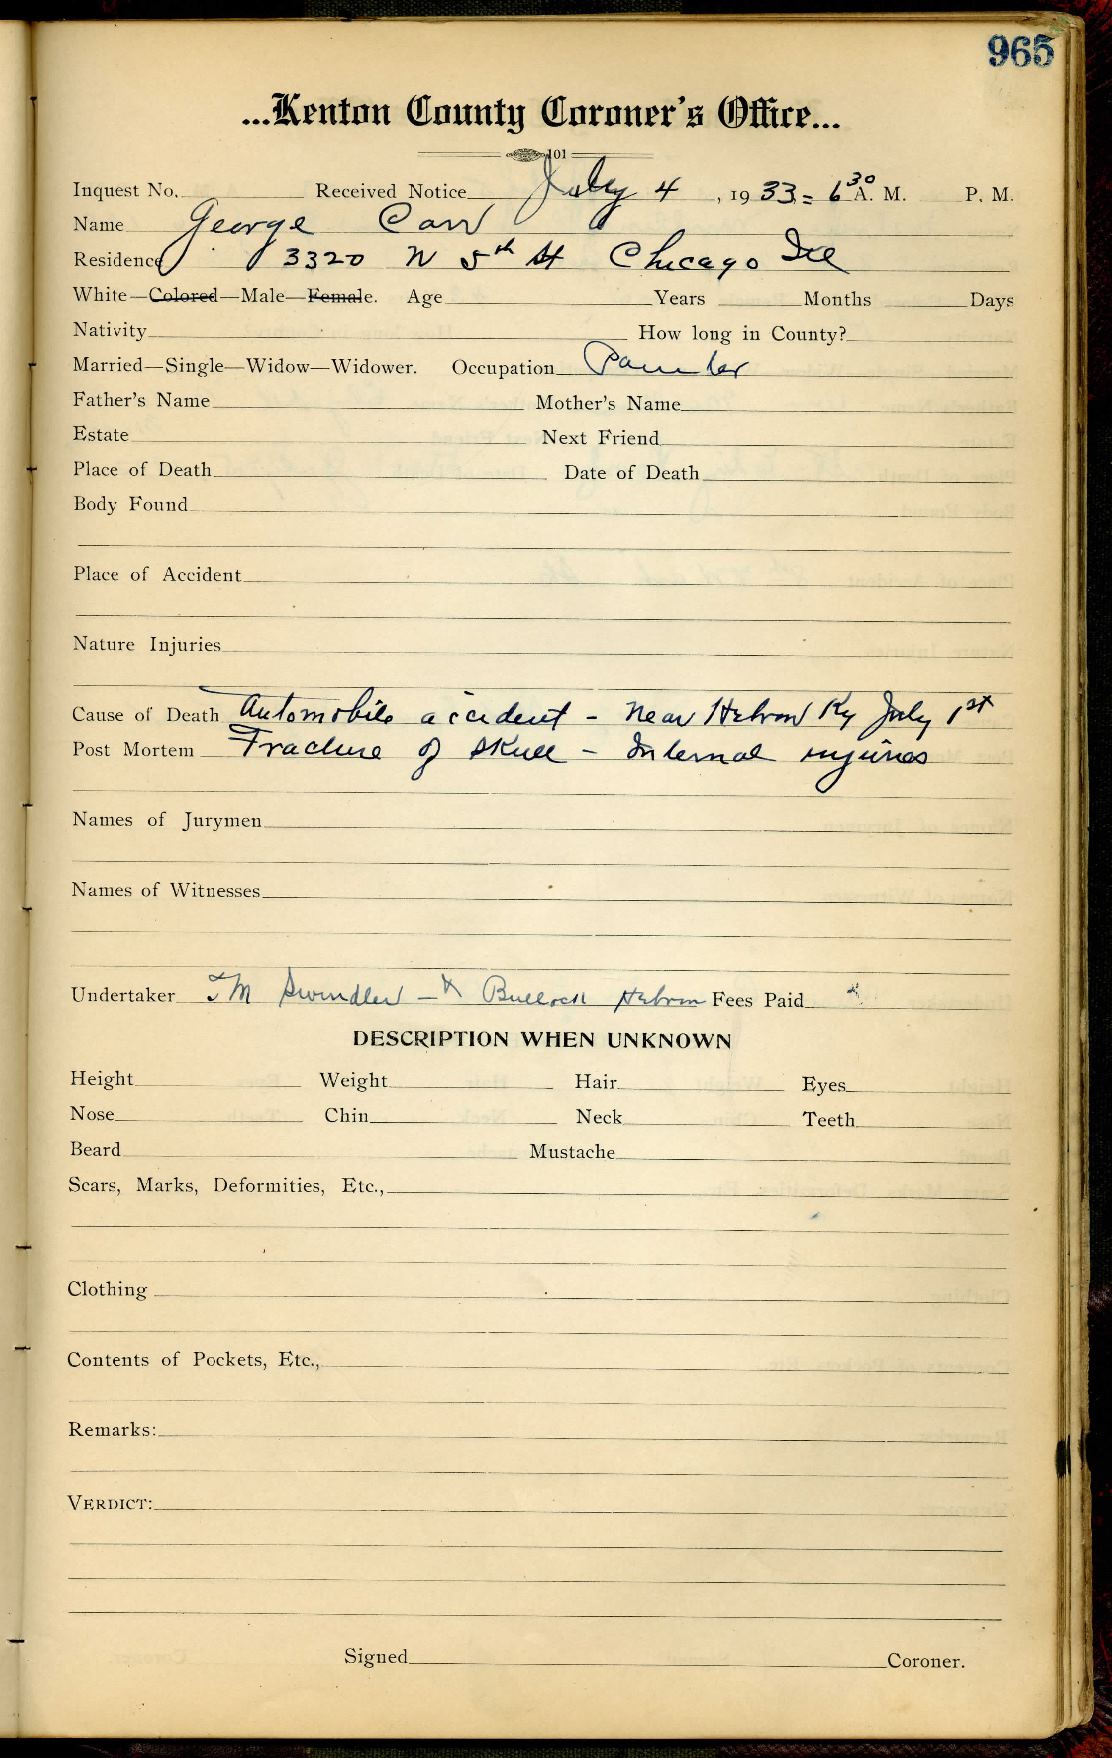 965
...Kenton County Coroner's Office...
101
Inquest No. Received Notice July 4, 1933 = 6 30 A. M. P. M.
Name George Carr
Residence 3320 N 5th St Chicago Ill
White—Colored—Male—Female. Age Years Months Days
Nativity How long in County?
Married—Single—Widow—Widower. Occupation Painter
Father's Name Mother's Name
Estate Next Friend
Place of Death Date of Death
Body Found
Place of Accident
Nature Injuries
Cause of Death Automobile accident - near Hebron Ky July 1st
Post Mortem Fracture of Skull - Internal injuries
Names of Jurymen
Names of Witnesses
Undertaker M Swindler - Bullock Hebron Fees Paid
DESCRIPTION WHEN UNKNOWN
Height Weight Hair Eyes
Nose Chin Neck Teeth
Beard Mustache
Scars, Marks, Deformities, Etc.,
Clothing
Contents of Pockets, Etc.,
Remarks:
VERDICT:
Signed Coroner.